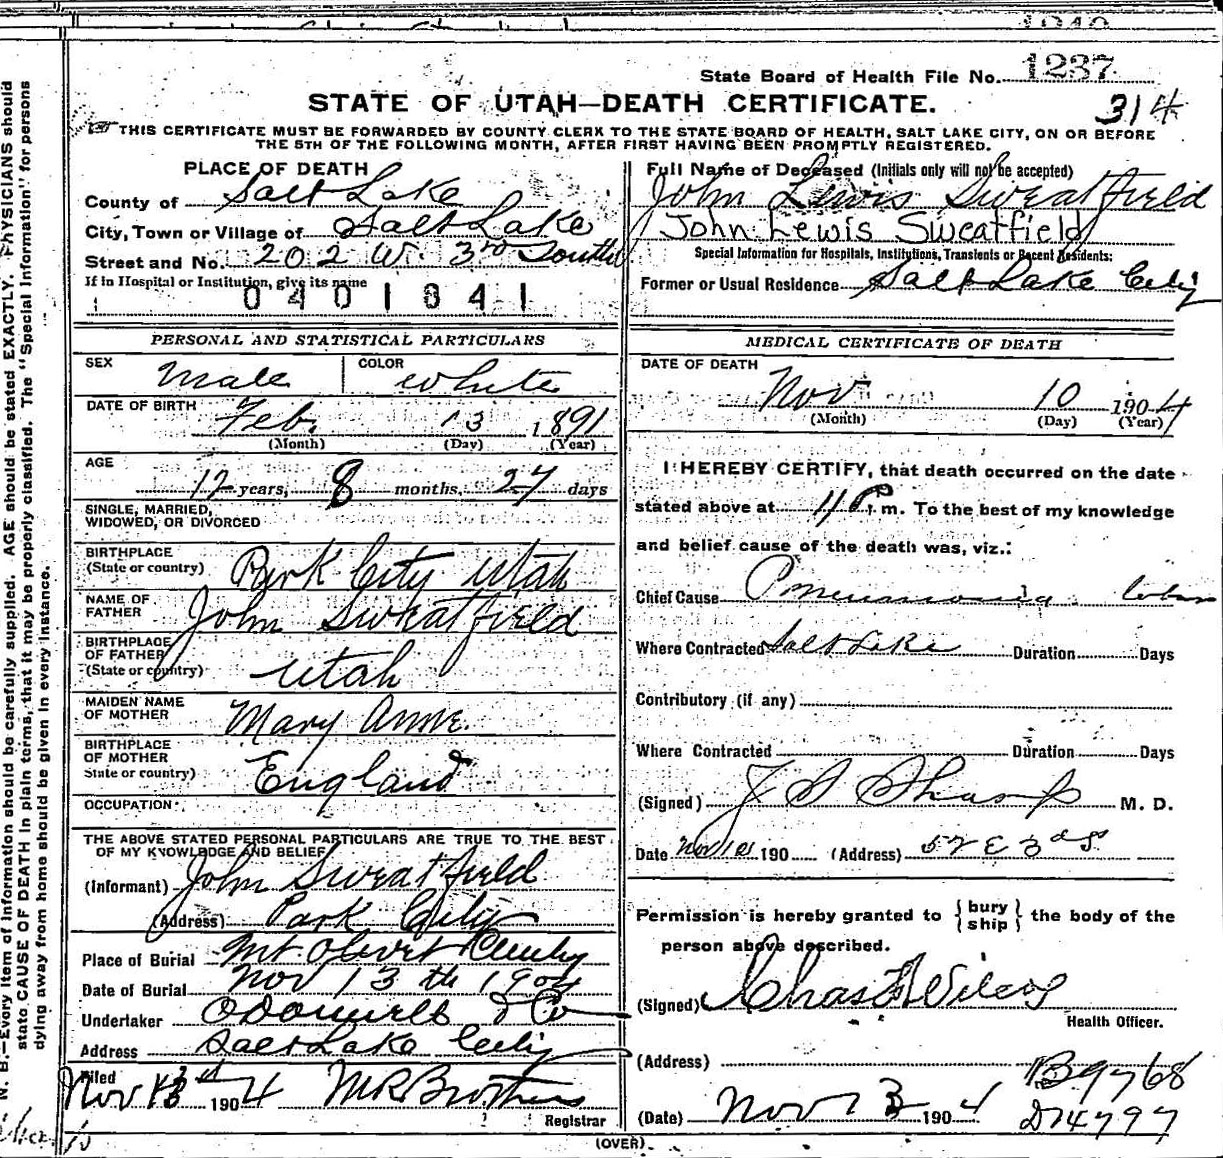 1237
State Board of Health File No.
STATE OF UTAH—DEATH CERTIFICATE.
314
THIS CERTIFICATE MUST BE FORWARDED BY COUNTY CLERK TO THE STATE BOARD OF HEALTH, SALT LAKE CITY, ON OR BEFORE
THE 5TH OF THE FOLLOWING MONTH, AFTER FIRST HAVING BEEN PROMPTLY REGISTERED.
PLACE OF DEATH
County of Salt Lake
City, Town or Village of Salt Lake
Street and No. 202 W. 3rd South
If in Hospital or Institution, give its name
0401841
Full Name of Deceased (Initials only will not be accepted)
John Lewis Sweatfield
John Lewis Sweatfield
Special Information for Hospitals, Institutions, Transients or Recent Residents:
Former or Usual Residence Salt Lake City
PERSONAL AND STATISTICAL PARTICULARS
SEX Male COLOR White
DATE OF BIRTH Feb. 13 1891
(Month) (Day) (Year)
AGE
12 years, 8 months, 27 days
SINGLE, MARRIED,
WIDOWED, OR DIVORCED
BIRTHPLACE
(State or country) Park City Utah
NAME OF
FATHER John Sweatfield
BIRTHPLACE
OF FATHER
(State or country) Utah
MAIDEN NAME
OF MOTHER Mary Anne.
BIRTHPLACE
OF MOTHER
State or country) England
OCCUPATION
THE ABOVE STATED PERSONAL PARTICULARS ARE TRUE TO THE BEST
OF MY KNOWLEDGE AND BELIEF
(Informant) John Sweatfield
(Address) Park City
Place of Burial Mt Olivet Cemty
Date of Burial Nov 13th 1904
Undertaker O'Donnell & Co
Address Salt Lake City
Filed
Nov 13 1904 M R Brothers
Registrar
MEDICAL CERTIFICATE OF DEATH
DATE OF DEATH
Nov 10 1904
(Month) (Day) (Year)
I HEREBY CERTIFY, that death occurred on the date
stated above at 11 P. m. To the best of my knowledge
and belief cause of the death was, viz.:
Chief Cause Pneumonia. lobar
Where Contracted Salt Lake Duration Days
Contributory (if any)
Where Contracted Duration Days
(Signed) J S Sharp M. D.
Date Nov 190 (Address) 52 E 3d S.
Permission is hereby granted to {bury
ship} the body of the
person above described.
(Signed) Chas Wilcox
Health Officer.
(Address)
(Date) Nov 13 1904
B9768
D14797
(OVER)
N. B.—Every item of information should be carefully supplied. AGE should be stated EXACTLY. PHYSICIANS should
state CAUSE OF DEATH in plain terms, that it may be properly classified. The "Special Information" for persons
dying away from home should be given in every instance.